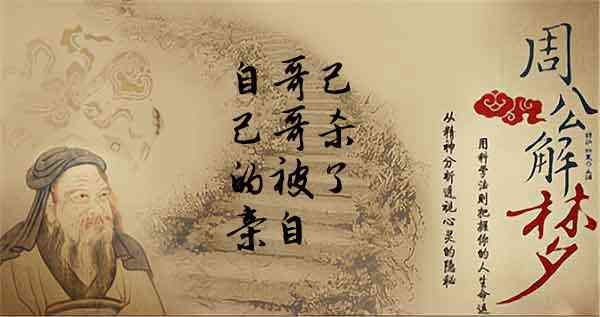 周公解梦
用科学法则把握你的人生命运
从精神分析透视心灵的隐秘
自己的亲
哥哥被自
己杀了